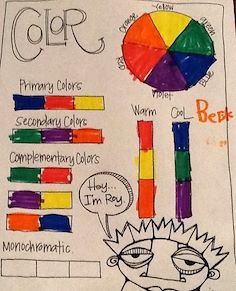 COLOR
Orange
Yellow
green
Blue
Violet
Red
Primary Colors
Secondary Colors
Complementary Colors
Monochromatic
Warm
Cool
Hey...
I'm Roy.